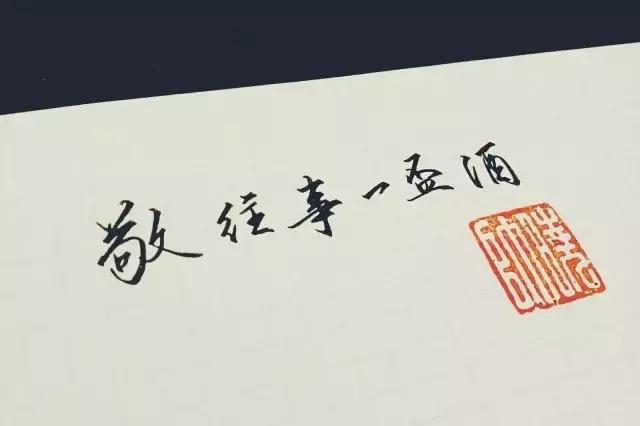 敬往事一盃酒